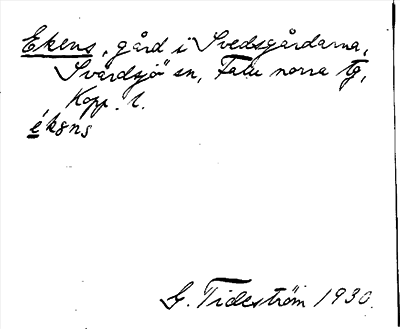 Ekens, gård i Svedsgårdarna,
Svärdsjö sn, Falu norra tg,
Kopp. l.
ékəns
G. Tideström 1930.